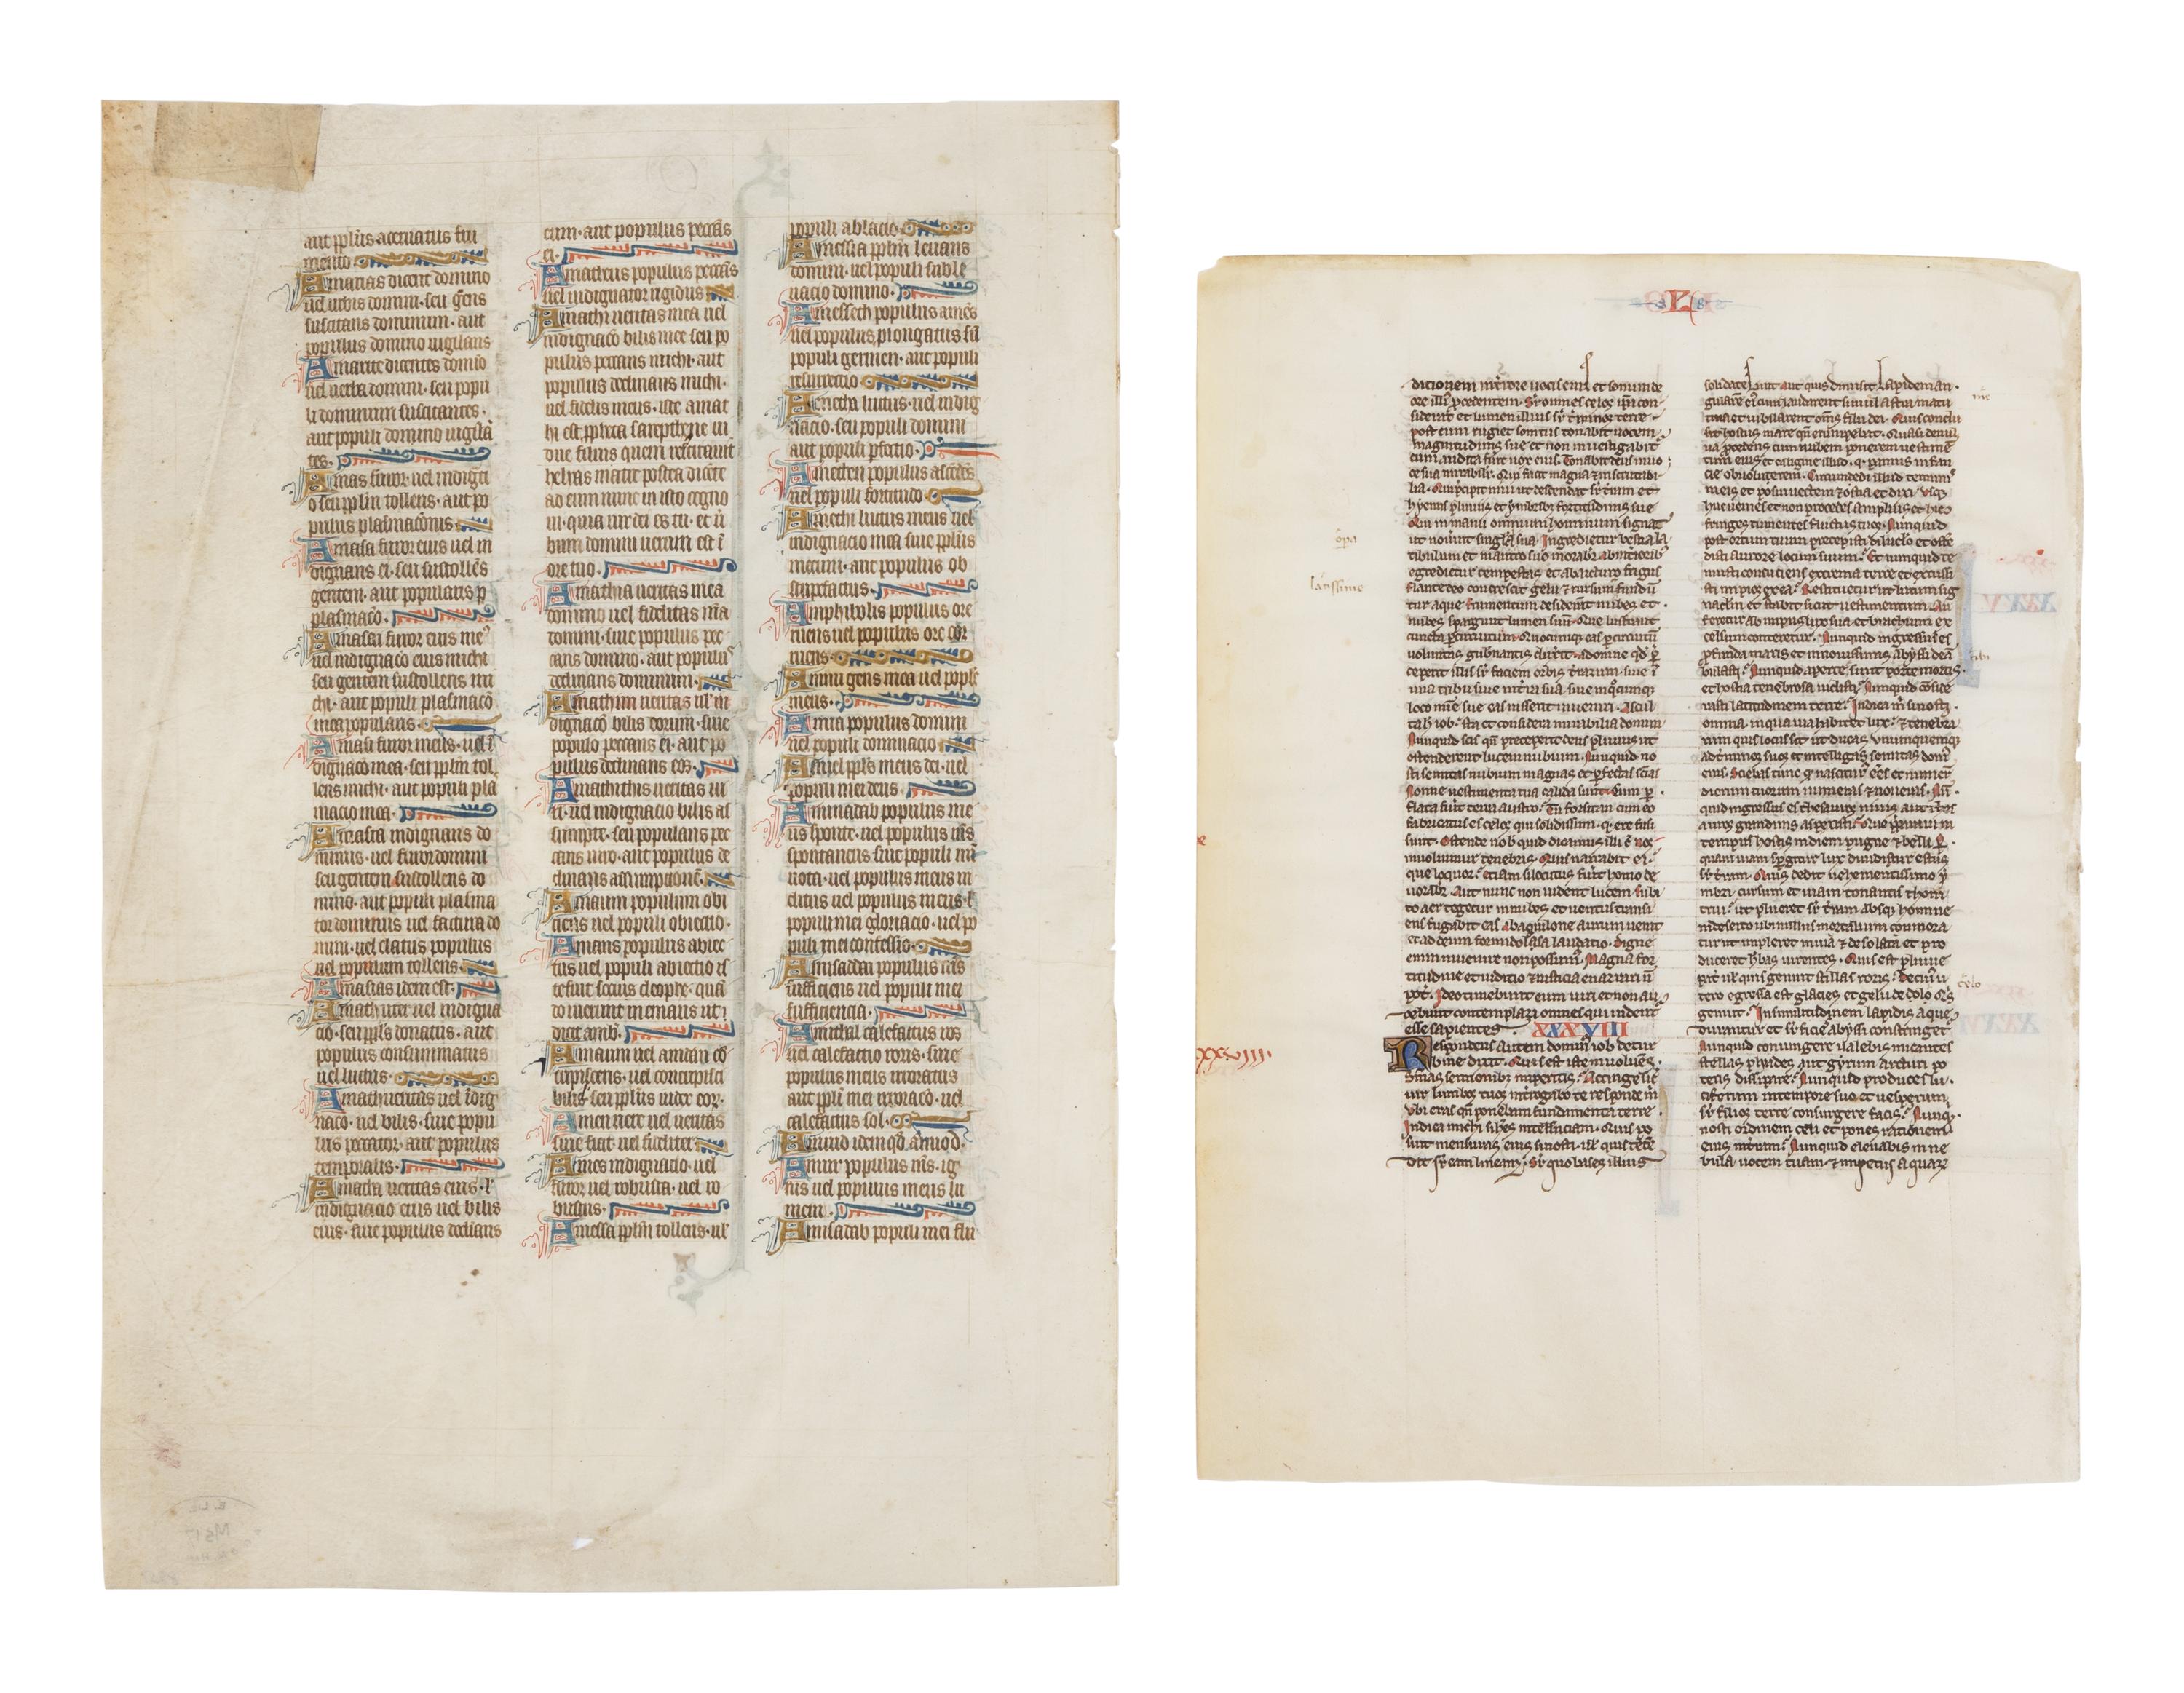 aut pplus acerbatus fru
mento.
Amatias dicent domino
uel urbis domini. seu gens
suscitans dominum. aut
populus domino uigilans
Amarite dicentes domio
uel uerba domini. seu popu
li dominum suscitantes.
aut populi domino uigilā
tes.
Amas furor. uel indigci
o seu pplm tollens. aut po
pulus plasmacionis
Amasa furor eius uel in
dignans ei. seu sustollēs
gentem. aut popularis p
plasmaco.
Amasai furor eius me
uel indignaco eius michi
seu gentem sustollens mi
chi. aut populi plasmaco
mea popularis.
Amasi furor meus. uel ī
dignaco mea. seu pplm tol
lens michi. aut populi pla
macio mea.
Amasia indignans do
minus. uel furor domini
seu gentem sustollens do
mino. aut populi plasma
tor dominus uel factura do
mini. uel elatus populus
uel populum tollens.
Amasias idem est.
Amath uter uel indigna
cō. seu ppls donatus. aut
populus consummatus
uel luctus.
Amath ueritas uel idig
nacō. uel bilis. siue popu
lus peccator. aut populus
temporalis.
Amatha ueritas eius. l
indignacio eius uel bilis
eius. aut populus declians
eum. aut populus peccās
ei.
Amatheus populus peccās
uel indignator rigidus
Amathi ueritas mea uel
indignacō bilis mee seu po
pulus peccans michi. aut
populus declinans michi.
uel fidelis meus. iste amat
hi est ppheta sarepthene ui
due filius quem rescitauit
helyas mater postea dicēte
ad eum nunc in isto cogno
ui. quia uir dei es tu. et ū
bum domini uerum est ī
ore tuo.
Amathia ueritas mea
domino uel fidelitas mea
domini. siue populus pec
cans domino. aut populus
declinans dominum.
Amathim ueritas ul in
dignacō bilis eorum. siue
populo peccans ei. aut po
pulus declinans eos.
Amathithis ueritas ui
ti. uel indignacio bilis as
sumpte. seu popularis pec
cans uiro. aut populus de
clinans assumptionē.
Amaum populum obi
ciens uel populi obiectio.
Amans populus abiec
tus uel populi abiectio is
te fuit socius cleophe. qua
do iuerunt in emaus ut
dicit amb.
Amaum uel amdan cō
cupiscens. uel concupisci
bilis. seu pplus iudex eor.
Amen uere uel ueritas
siue fiat uel fideliter.
Ames indignacio. uel
furor uel robusta. uel ro
bustus.
Amessa pplm tollens. ul
populi ablacio.
Amessia pplm leuans
domini. uel populi suble
uacio domino.
Amessech populus amēs
uel populus plongatus. siū
populi germen. aut populi
resurrectio
Ametha luctus. uel indig
nacio. seu populi domini
aut populi pfectio.
Amethen populus ascēdēs
uel populi fortitudo.
Amethi luctus meus uel
indignacio mea siue pplus
mecum. aut populus ob
stupefactus.
Amphibolis populus ore
ruens uel populus ore cor
ruens.
Ammi gens mea uel popls
meus.
Amia populus domini
uel populi dominacio
Amiel ppls meus dei. uel
populi mei deus.
Aminadab populus me
us sponte. uel populus ms
spontaneus siue populi mi
uota. uel populus meus in
clitus uel populus meus. l
populi mei gloriacio. uel po
puli mei confessio.
Amisaddai populus ms
sufficiens uel populi mei
sufficiencia.
Amithal calefactus ros
uel calefacio roris. siue
populus meus irroratus
aut ppli mei irroracō. uel
calefactus sol.
Amiud idem qd amiod.
Amir populus ms. ig
nis uel populus meus lu
men.
Amisadab populi mei flu
L
ditionem inťrore uocis eius et sonum de
ore illi pcedentem. Sr omnes celos ipse con
siderat et lumen illius sr tminos terre.
post eum rugiet sonitus tonabit uocem
magnitudinis sue et non inuestigabit
cum audita fuit uox eius. Tonabit deus in uo
ce sua mirabilr. Qui facit magna & inscrutabi
lia. Qui pcipit niui ut descendat sr tram et
hyemis pluuiis et ymbri fortitudinis sue
Qui in manu omnium hominum signat
ut nouint singli opa sua. Ingredietur bestia la
tibulum et in antro suo morabr. Ab interiorib
egredietur tempestas et ab arcturo frigus
flante deo concrescit gelu & rursum fundun
tur aque. Frumentum desiderat nubes et
nubes spargunt lumen suū. Que lustrant
cuncta p circuitum. Quocumq eas p circuitū
uoluntas gubnantis duxit. ad omne qd p
ceperit illis sr faciem orbis trarum. siue ī
una tribu siue in tra sua. siue in quocumq
loco mīe sue eas iussent inueniri. Ascul
ta h iob. sta et considera mirabilia domini
Nunquid scis qn preceperit deus pluuiis ut
ostenderent lucem nubium. Nunquid no
sti semitas nubium magnas et pfectas scias
Nonne uestimenta tua calida sunt. cum p
flata fuit terra austro. Tu forsitan cum eo
fabricatus es celos qui solidissimi q ere fusi
sunt. Ostende nob quid dicamus illi. nos
inuoluimur tenebris. Quis narrabit ei
que loquor. etiam si locutus fuit homo de
uorabr. Aut nunc non uident lucem. subi
to aer cogetur in nubes et uentus transi
ens fugabit eas. Ab aquilone aurum uenit
et ad deum formidolosa laudatio. Digne
eum inuenire non possum. Magnus for
titudine et iudicio & iusticia enarrari n
pot. Ideo timebunt eum uiri et non au
debunt contemplari omnes qui uident
esse sapientes. XXXVIII
Respondens autem dominus iob de tur
bine dixit. Quis est iste inuoluens
smias sermonibz imperitis. Accinge sic
uir lumbos tuos. inťrogabo te responde m
Vbi eras qn ponebam fundamenta terre
Indica michi si hes intelligenciam. Quis po
suit mensuras eius si nosti. ul quis teten
dit sr eam lineam. Sr quo bases illius
solidate sunt aut quis dimisit lapidem an
gularē eius cum laudarent simul astra matu
tina et iubilarent oms filii dei. Quis conclu
sit hostiis mare qn erumpebat. Quasi de uul
ua pcedens cum nubem ponerem uestimē
tum eius et caligine illud q pannis infan
cie obuoluerem. Circumdedi illud terminis
meis et posui uectem & ostia et dixi. Vsq
huc uenies et non procedes amplius et hic
fringes tumentes fluctus tuos. Nunquid
post ortum tuum precepisti diluculo et oste
disti aurore locum suum. Et nunquid te
nuisti concuciens extrema terre et excussi
sti impios ex ea. Restituetur ut lutum sig
naclm et stabit sicut uestimentum. Au
feretur ab impiis lux sua et brachium ex
celsum confringetur. Nunquid ingressus es
pfunda maris et in nouissimis abyssi dea
bulasti. Nunquid aperte sunt porte mortis
et hostia tenebrosa uidisti. Nunquid cōside
rasti latitudinem terre. Indica m si nosti
omnia. in qua uia habitet lux. & tenebra
rum quis locus sit. ut ducas unumquemq
ad tminos suos et intelligas semitas dom
eius. Sciebas tunc q nasciturus ees et numer
dierum tuorum numeras & noueras. Nū
quid ingressus es thesauros niuis aut thes
auros grandinis aspexisti. Que pparaui in
tempus hostis in diem pugne & belli. P
quam uiam spgitur lux diuiditur estus
sr tram. Quis dedit uehementissimo y
mbri cursum et uiam tonantis thoni
trui. ut plueret sr tram absq homine
in deserto ubi nullus mortalium commora
tur ut impleret inuia & desolatā et pro
duceret hbas uirentes. Quis est pluuie
pr ul quis genuit stillas roris. De cuius u
tero egressa est glacies et gelu de celo qis
genuit. In similitudinem lapidis aque
durantur et sr ficie abyssi constringet
Nunquid coniungere ualebis micantes
stellas pliades aut gyrum arcturi po
teris dissipare. Nunquid producis lu
ciferum in tempore suo et uesperum
sr filios terre consurgere facis. Nunq
nosti ordinem celi et pones rationem
eius in tra. Nunquid eleuabis in ne
bula uocem tuam. & impetus aquarz
opa
latissime
celo
xxxviii.